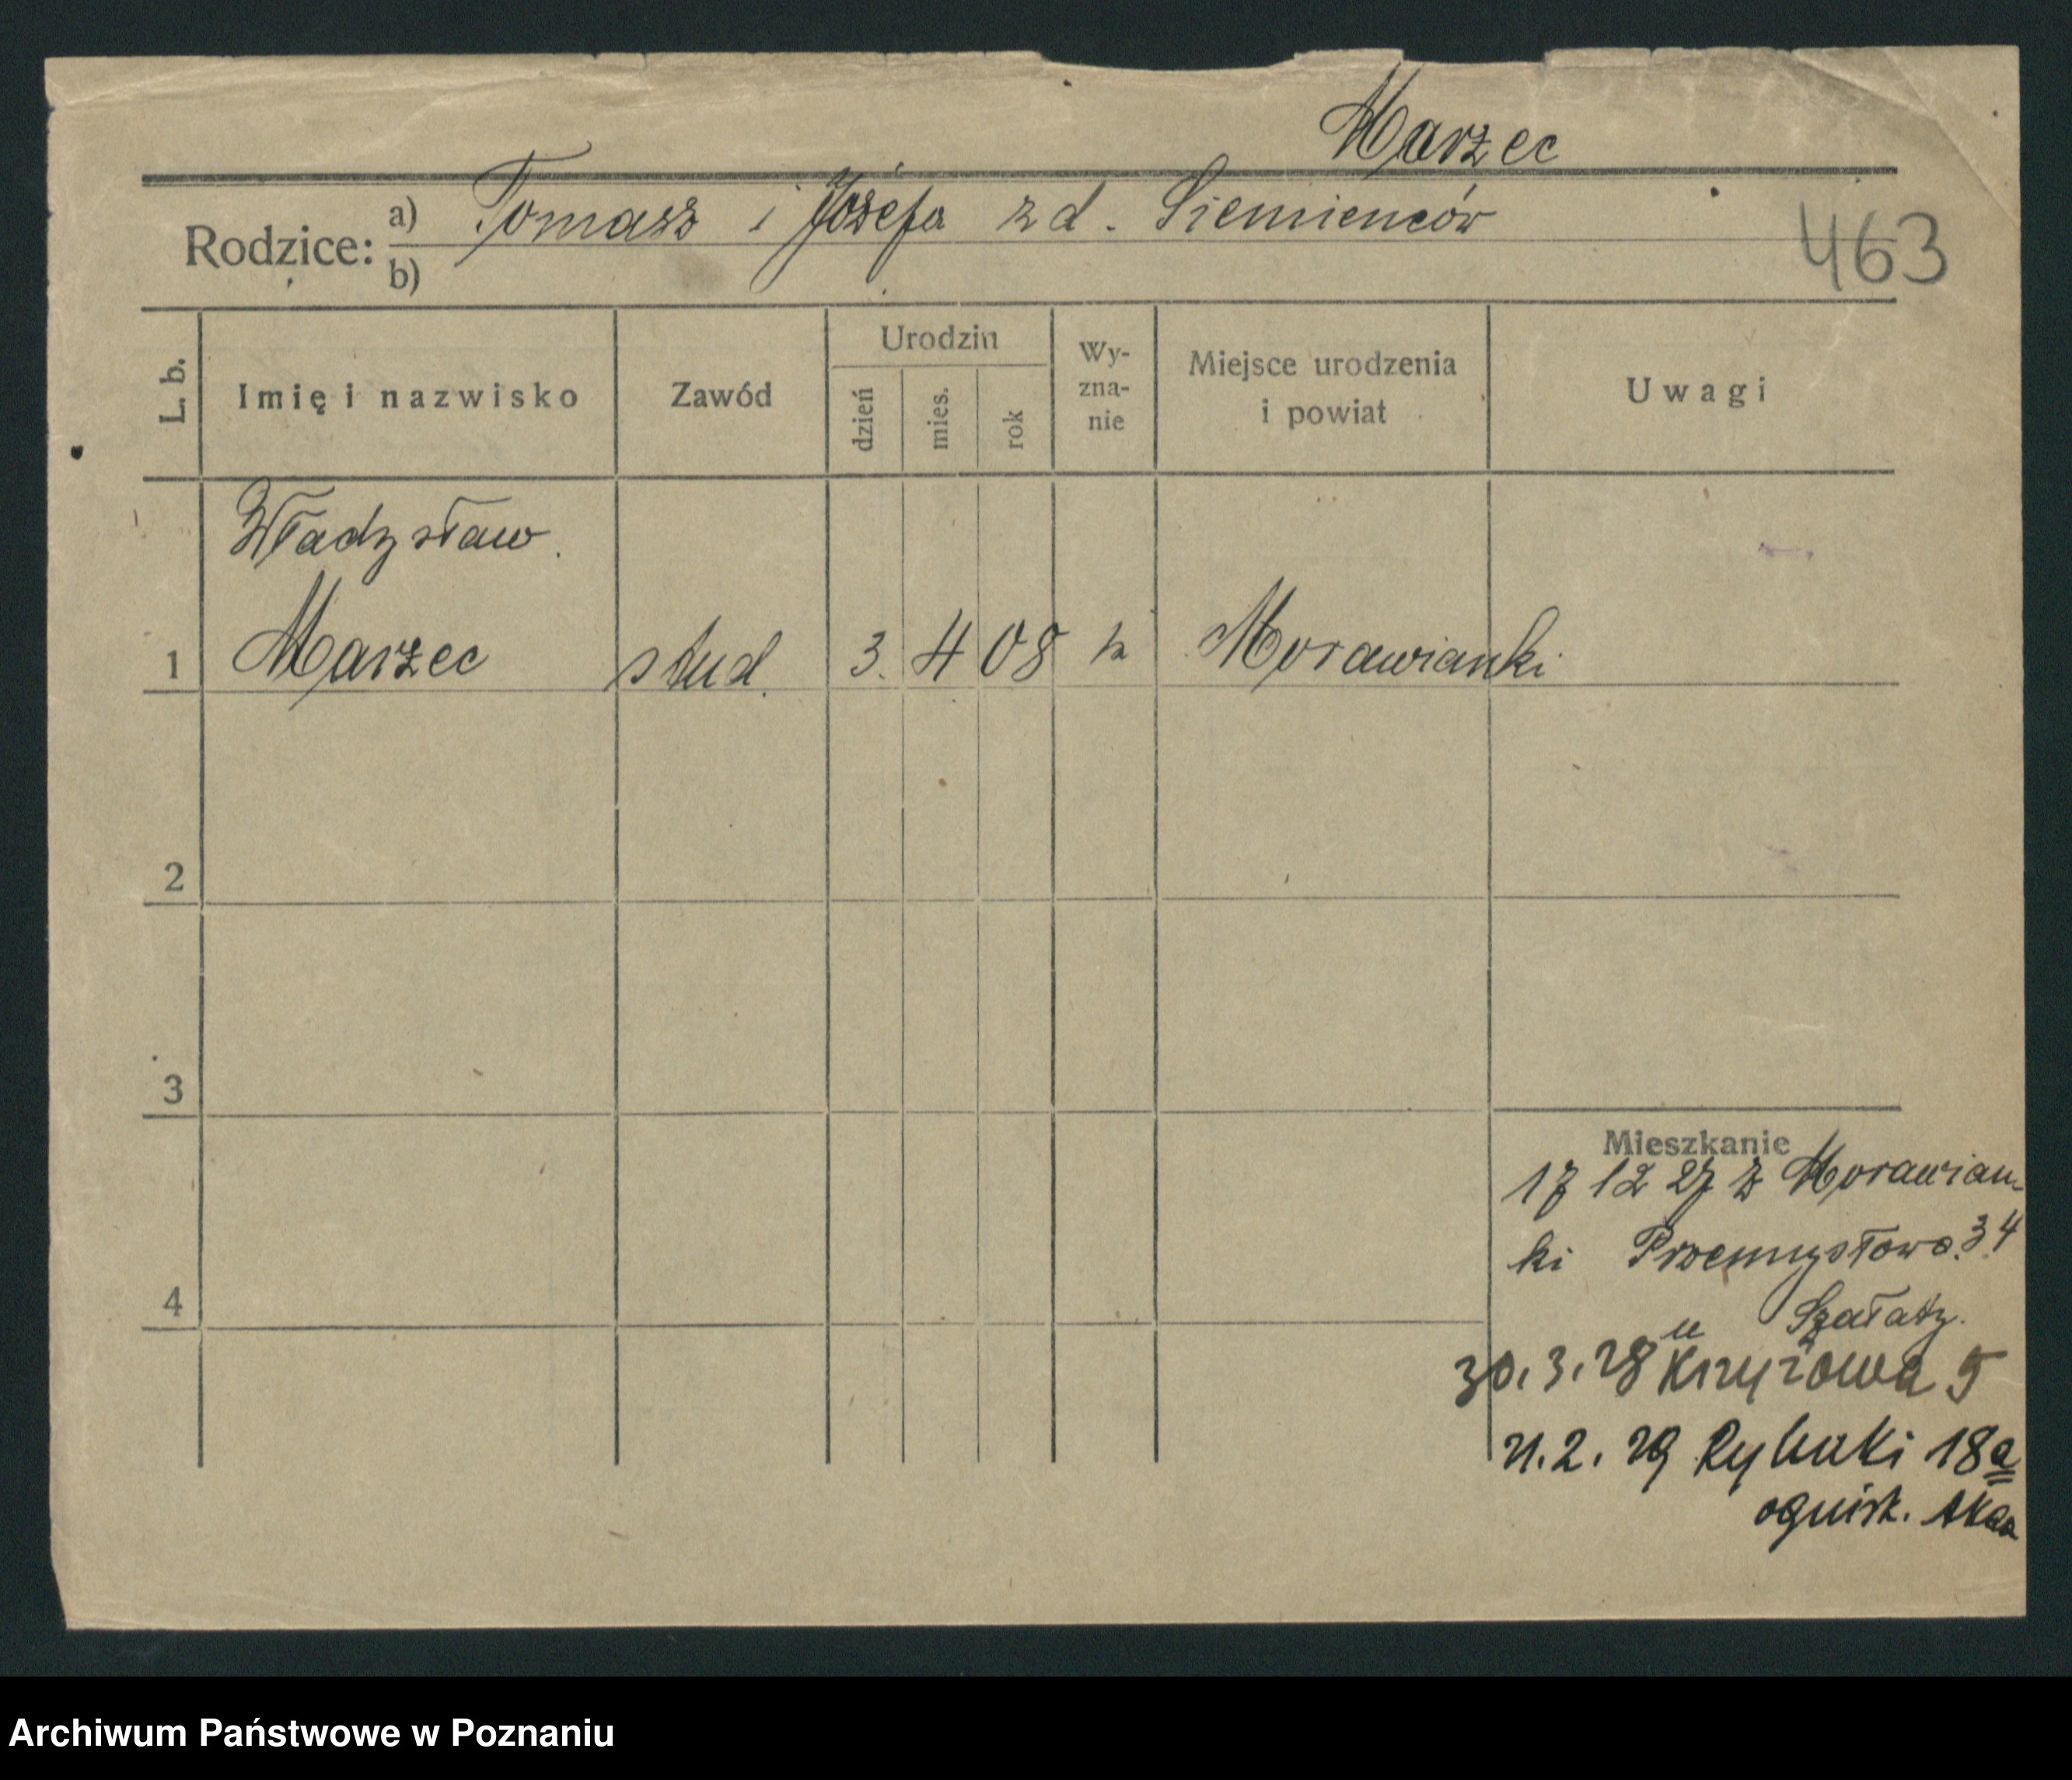 Marzec
Rodzice: a) Tomasz i Józefa z d. Siemienców
b)
463
L. b.
Imię i nazwisko
Zawód
Urodzin
dzień
mies.
rok
Wy-
zna-
nie
Miejsce urodzenia
i powiat
Uwagi
Władysław
1 Marzec stud. 3. 4 08 k Morawianki
2
3
4
Mieszkanie
17 12 27 z Morawian-
ki Przemysłowa 34
u Szałaty.
30.3.28 Krzyżowa 5
21.2.29 Rybaki 18a
ognisk. Akad
Archiwum Państwowe w Poznaniu